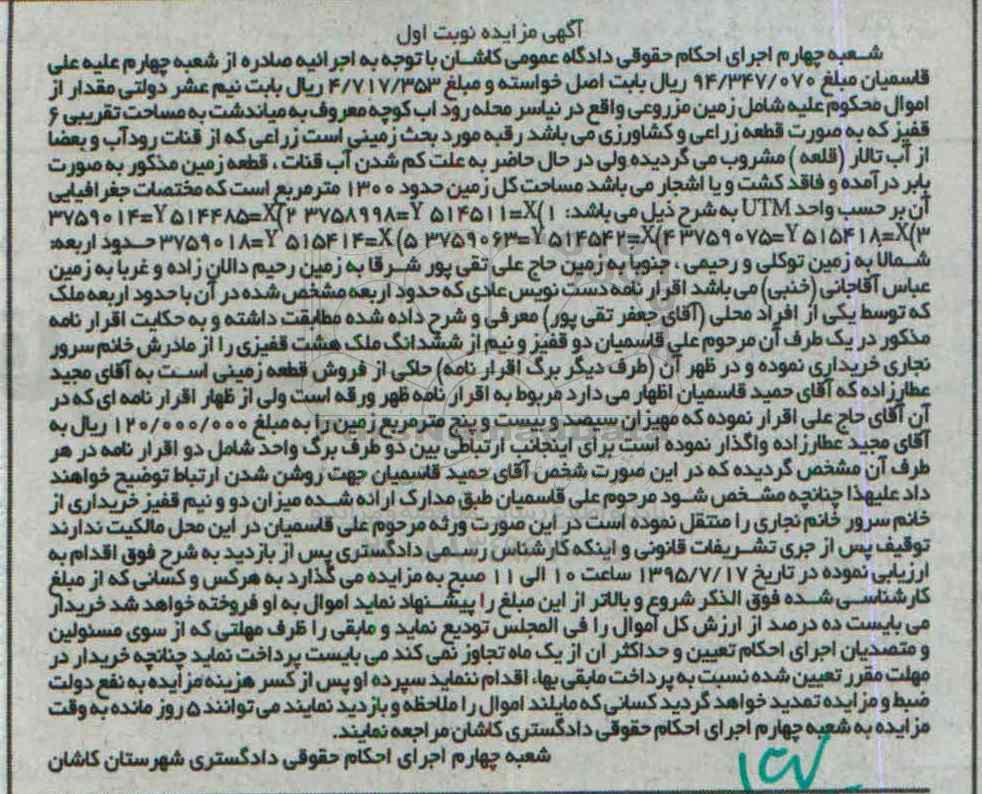 آگهی مزایده نوبت اول
شعبه چهارم اجرای احکام حقوقی دادگاه عمومی کاشان با توجه به اجرائیه صادره از شعبه چهارم علیه علی
قاسمیان مبلغ ۹۴/۳۴۷/۰۷۰ ریال بابت اصل خواسته و مبلغ ۴/۷۱۷/۳۵۳ ریال بابت نیم عشر دولتی مقدار از
اموال محکوم علیه شامل زمین مزروعی واقع در نیاسر محله رود اب کوچه معروف به میاندشت به مساحت تقریبی ۶
قفیز که به صورت قطعه زراعی و کشاورزی می باشد رقبه مورد بحث زمینی است زراعی که از قنات رودآب و بعضا
از آب تالار (قلعه) مشروب می گردیده ولی در حال حاضر به علت کم شدن آب قنات، قطعه زمین مذکور به صورت
بایر در آمده و فاقد کشت و یا اشجار می باشد مساحت کل زمین حدود ۱۳۰۰ مترمربع است که مختصات جغرافیایی
آن بر حسب واحد UTM به شرح ذیل می باشد: ۱)X=۵۱۴۵۱۱ Y=۳۷۵۸۹۹۸ ۲)X=۵۱۴۴۸۵ Y=۳۷۵۹۰۱۴
۳)X=۵۱۵۴۱۸ Y=۳۷۵۹۰۷۵ ۴)X=۵۱۴۵۴۲ Y=۳۷۵۹۰۶۳ ۵)X=۵۱۵۴۱۴ Y=۳۷۵۹۰۱۸ حدود اربعه:
شمالا به زمین توکلی و رحیمی، جنوبا به زمین حاج علی تقی پور شرقا به زمین رحیم دالان زاده و غربا به زمین
عباس آقاجانی (خنبی) می باشد اقرار نامه دست نویس عادی که حدود اربعه مشخص شده در آن با حدود اربعه ملک
که توسط یکی از افراد محلی (آقای جعفر تقی پور) معرفی و شرح داده شده مطابقت داشته و به حکایت اقرار نامه
مذکور در یک طرف آن مرحوم علی قاسمیان دو قفیز و نیم از ششدانگ ملک هشت قفیزی را از مادرش خانم سرور
نجاری خریداری نموده و در ظهر آن (طرف دیگر برگ اقرار نامه) حاکی از فروش قطعه زمینی است به آقای مجید
عطارزاده که آقای حمید قاسمیان اظهار می دارد مربوط به اقرار نامه ظهر ورقه است ولی از ظهار اقرار نامه ای که در
آن آقای حاج علی اقرار نموده که مهیزان سیصد و بیست و پنج مترمربع زمین را به مبلغ ۱۲۰/۰۰۰/۰۰۰ ریال به
آقای مجید عطارزاده واگذار نموده است برای اینجانب ارتباطی بین دو طرف برگ واحد شامل دو اقرار نامه در هر
طرف آن مشخص گردیده که در این صورت شخص آقای حمید قاسمیان جهت روشن شدن ارتباط توضیح خواهند
داد علیهذا چنانچه مشخص شود مرحوم علی قاسمیان طبق مدارک ارائه شده میزان دو و نیم قفیز خریداری از
خانم سرور خانم نجاری را منتقل نموده است در این صورت ورثه مرحوم علی قاسمیان در این محل مالکیت ندارند
توقیف پس از جری تشریفات قانونی و اینکه کارشناس رسمی دادگستری پس از بازدید به شرح فوق اقدام به
ارزیابی نموده در تاریخ ۱۳۹۵/۷/۱۷ ساعت ۱۰ الی ۱۱ صبح به مزایده می گذارد به هرکس و کسانی که از مبلغ
کارشناسی شده فوق الذکر شروع و بالاتر از این مبلغ را پیشنهاد نماید اموال به او فروخته خواهد شد خریدار
می بایست ده درصد از ارزش کل اموال را فی المجلس تودیع نماید و مابقی را ظرف مهلتی که از سوی مسئولین
و متصدیان اجرای احکام تعیین و حداکثر ان از یک ماه تجاوز نمی کند می بایست پرداخت نماید چنانچه خریدار در
مهلت مقرر تعیین شده نسبت به پرداخت مابقی بها، اقدام ننماید سپرده او پس از کسر هزینه مزایده به نفع دولت
ضبط و مزایده تمدید خواهد گردید کسانی که مایلند اموال را ملاحظه و بازدید نمایند می توانند ۵ روز مانده به وقت
مزایده به شعبه چهارم اجرای احکام حقوقی دادگستری کاشان مراجعه نمایند.
شعبه چهارم اجرای احکام حقوقی دادگستری شهرستان کاشان